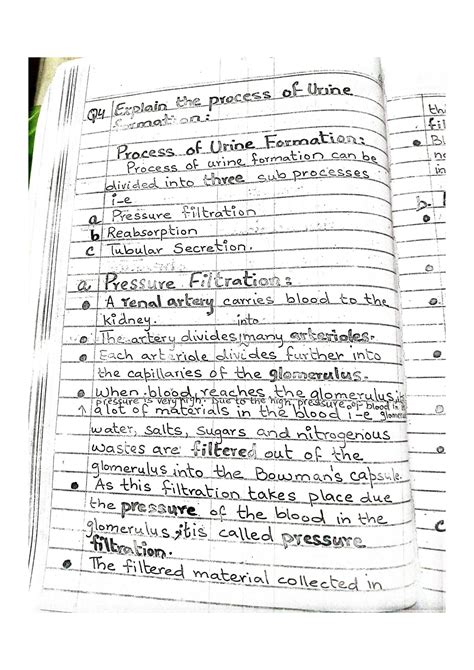 Q4 Explain the process of Urine
formation:
Process of Urine Formation:
Process of urine formation can be
divided into three sub processes
i-e
a Pressure filtration
b Reabsorption
c Tubular Secretion.
a Pressure Filtration:
• A renal artery carries blood to the
kidney.
into
• The artery divides, many arterioles.
• Each arteriole divides further into
the capillaries of the glomerulus.
• When blood reaches the glomerulus, its
pressure is very high. Due to the high pressure of blood in
a lot of materials in the blood i-e
water, salts, sugars and nitrogenous
wastes are filtered out of the
glomerulus into the Bowman's capsule.
• As this filtration takes place due
the pressure of the blood in the
glomerulus, it is called pressure
filtration.
• The filtered material collected in
b.
c